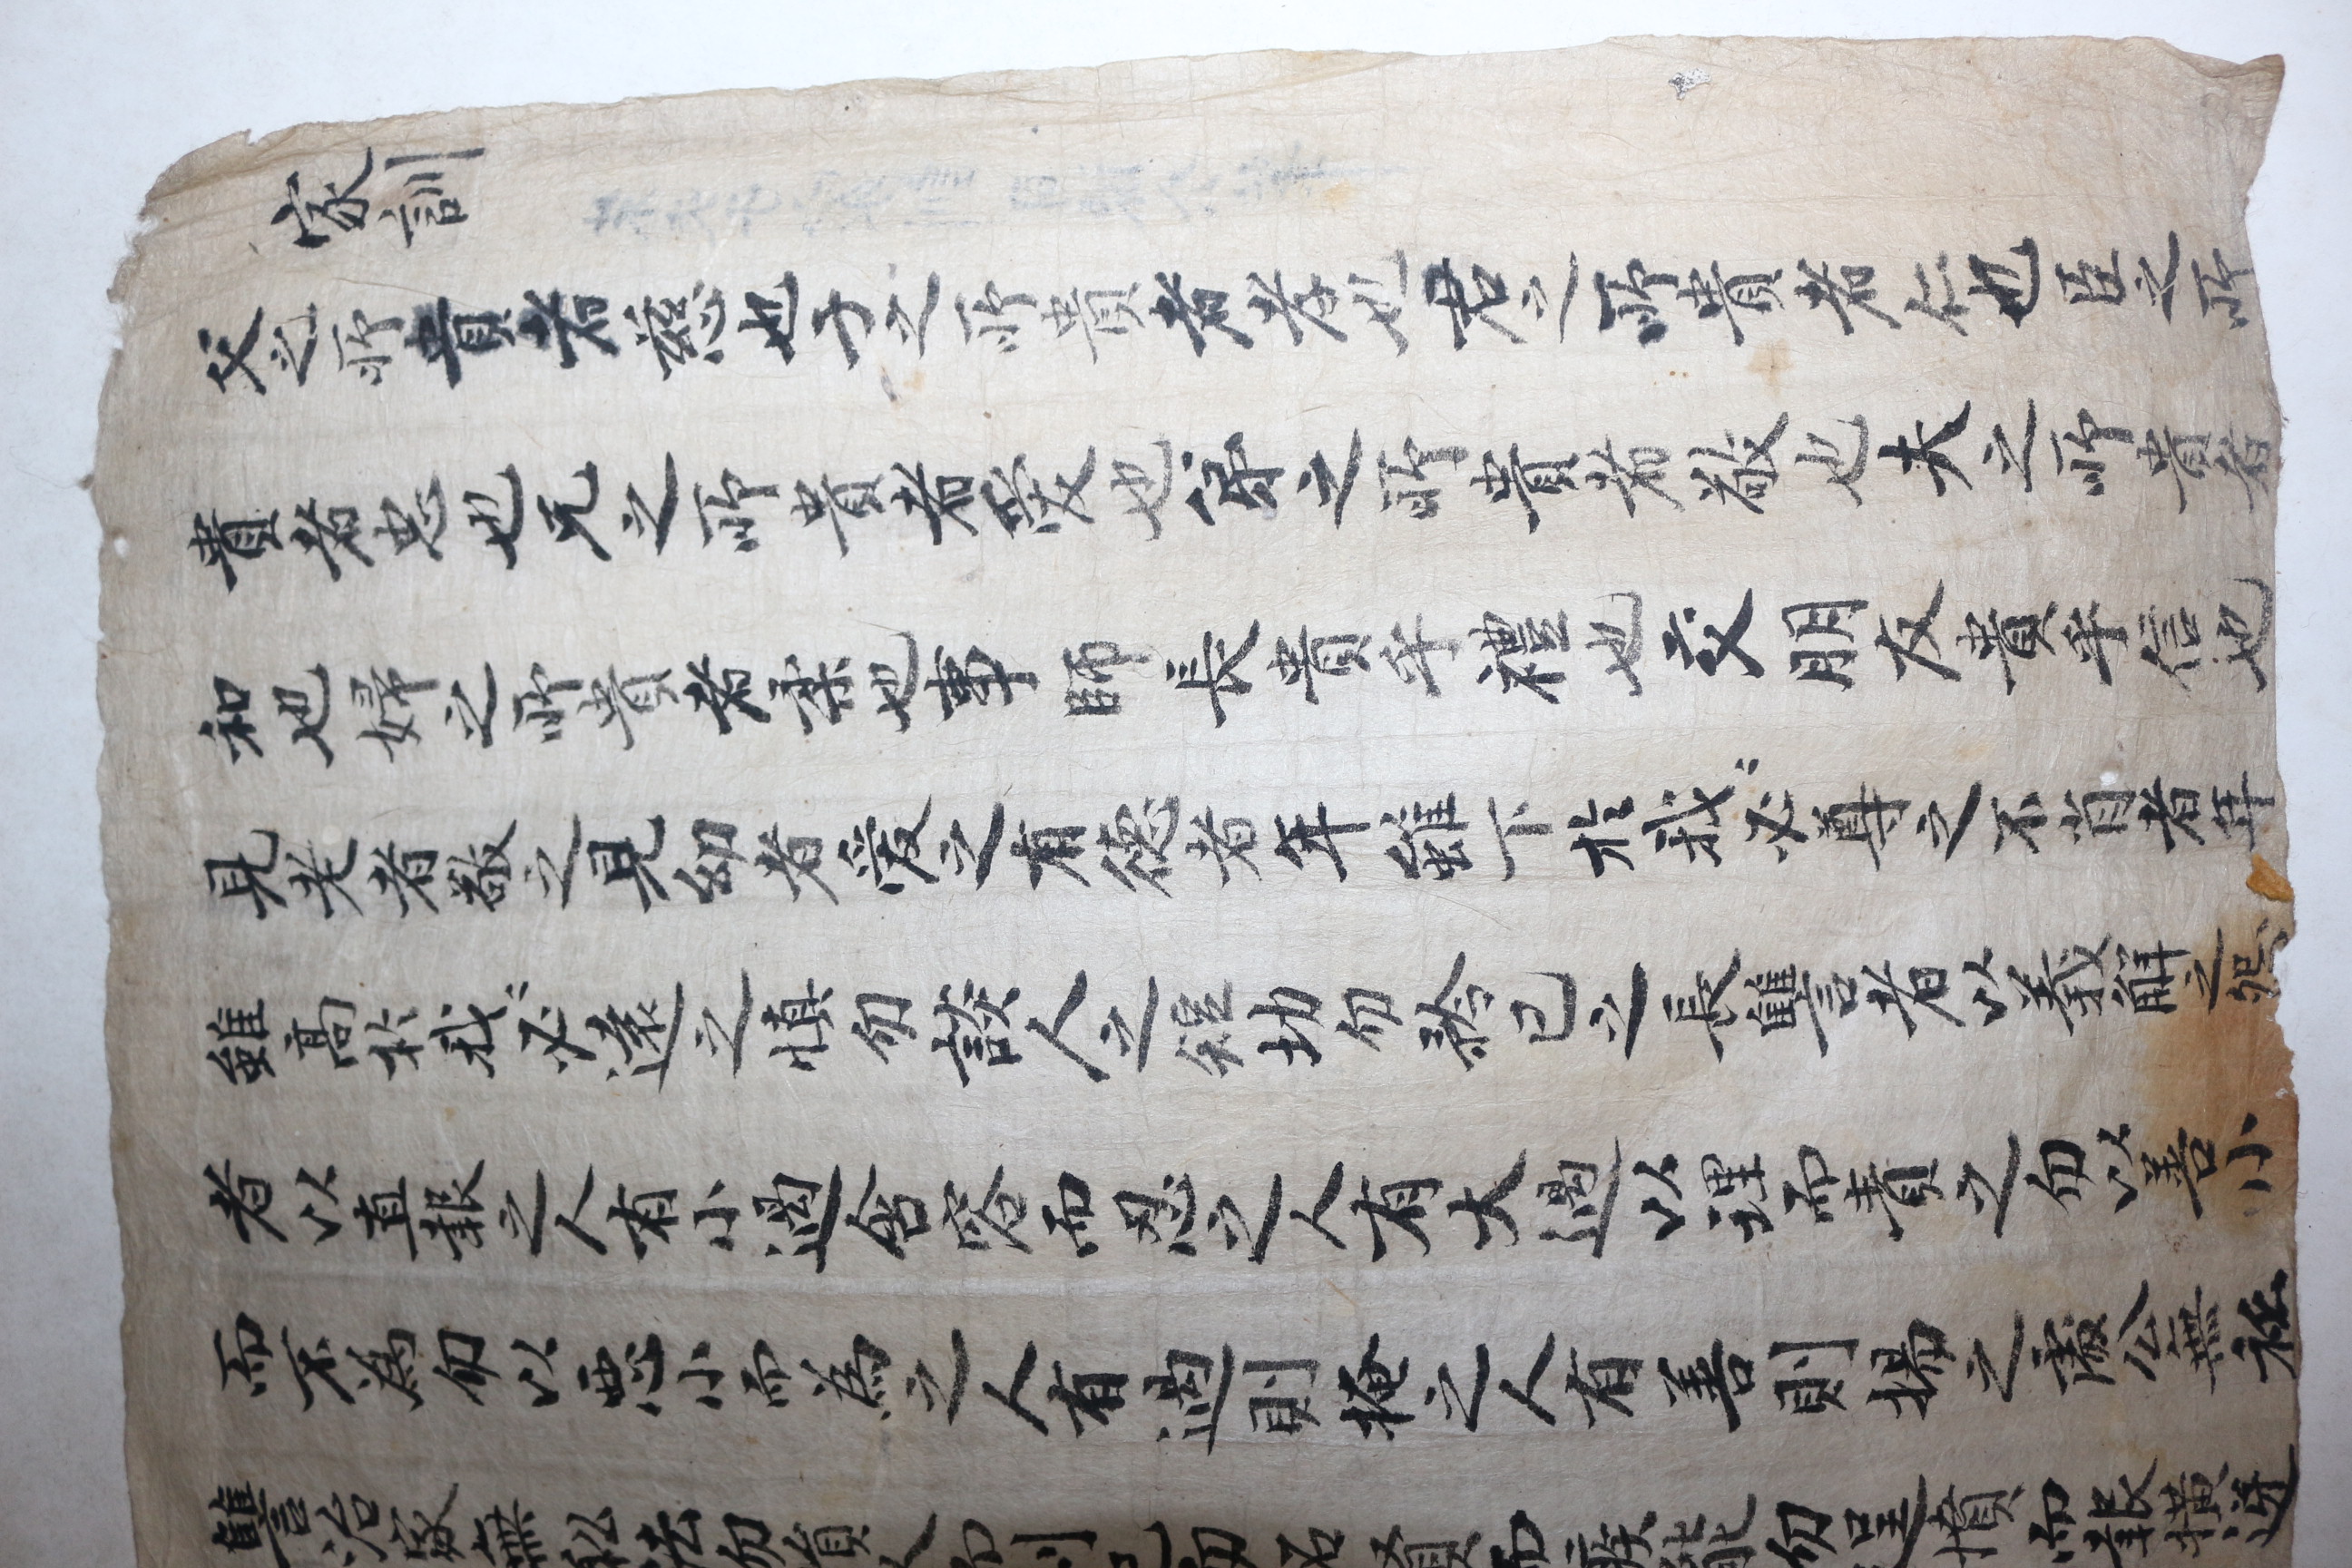 家訓
父之所貴者慈也子之所貴者孝也君之所貴者仁也臣之所
貴者忠也兄之所貴者愛也弟之所貴者敬也夫之所貴者
和也婦之所貴者柔也事師長貴乎禮也交朋友貴乎信也
見老者敬之見幼者愛之有德者年雖下於我〻必尊之不肖者年
雖高於我〻必遠之愼勿談人之短切勿矜己之長讐者以義解之怨
者以直報之人有小過含容而忍之人有大過以理而責之勿以善小
而不爲勿以惡小而爲之人有過則掩之人有善則揚之處公無私
讐治家無私法勿損人而利己勿妬賢而嫉能勿逞憤而報橫逆